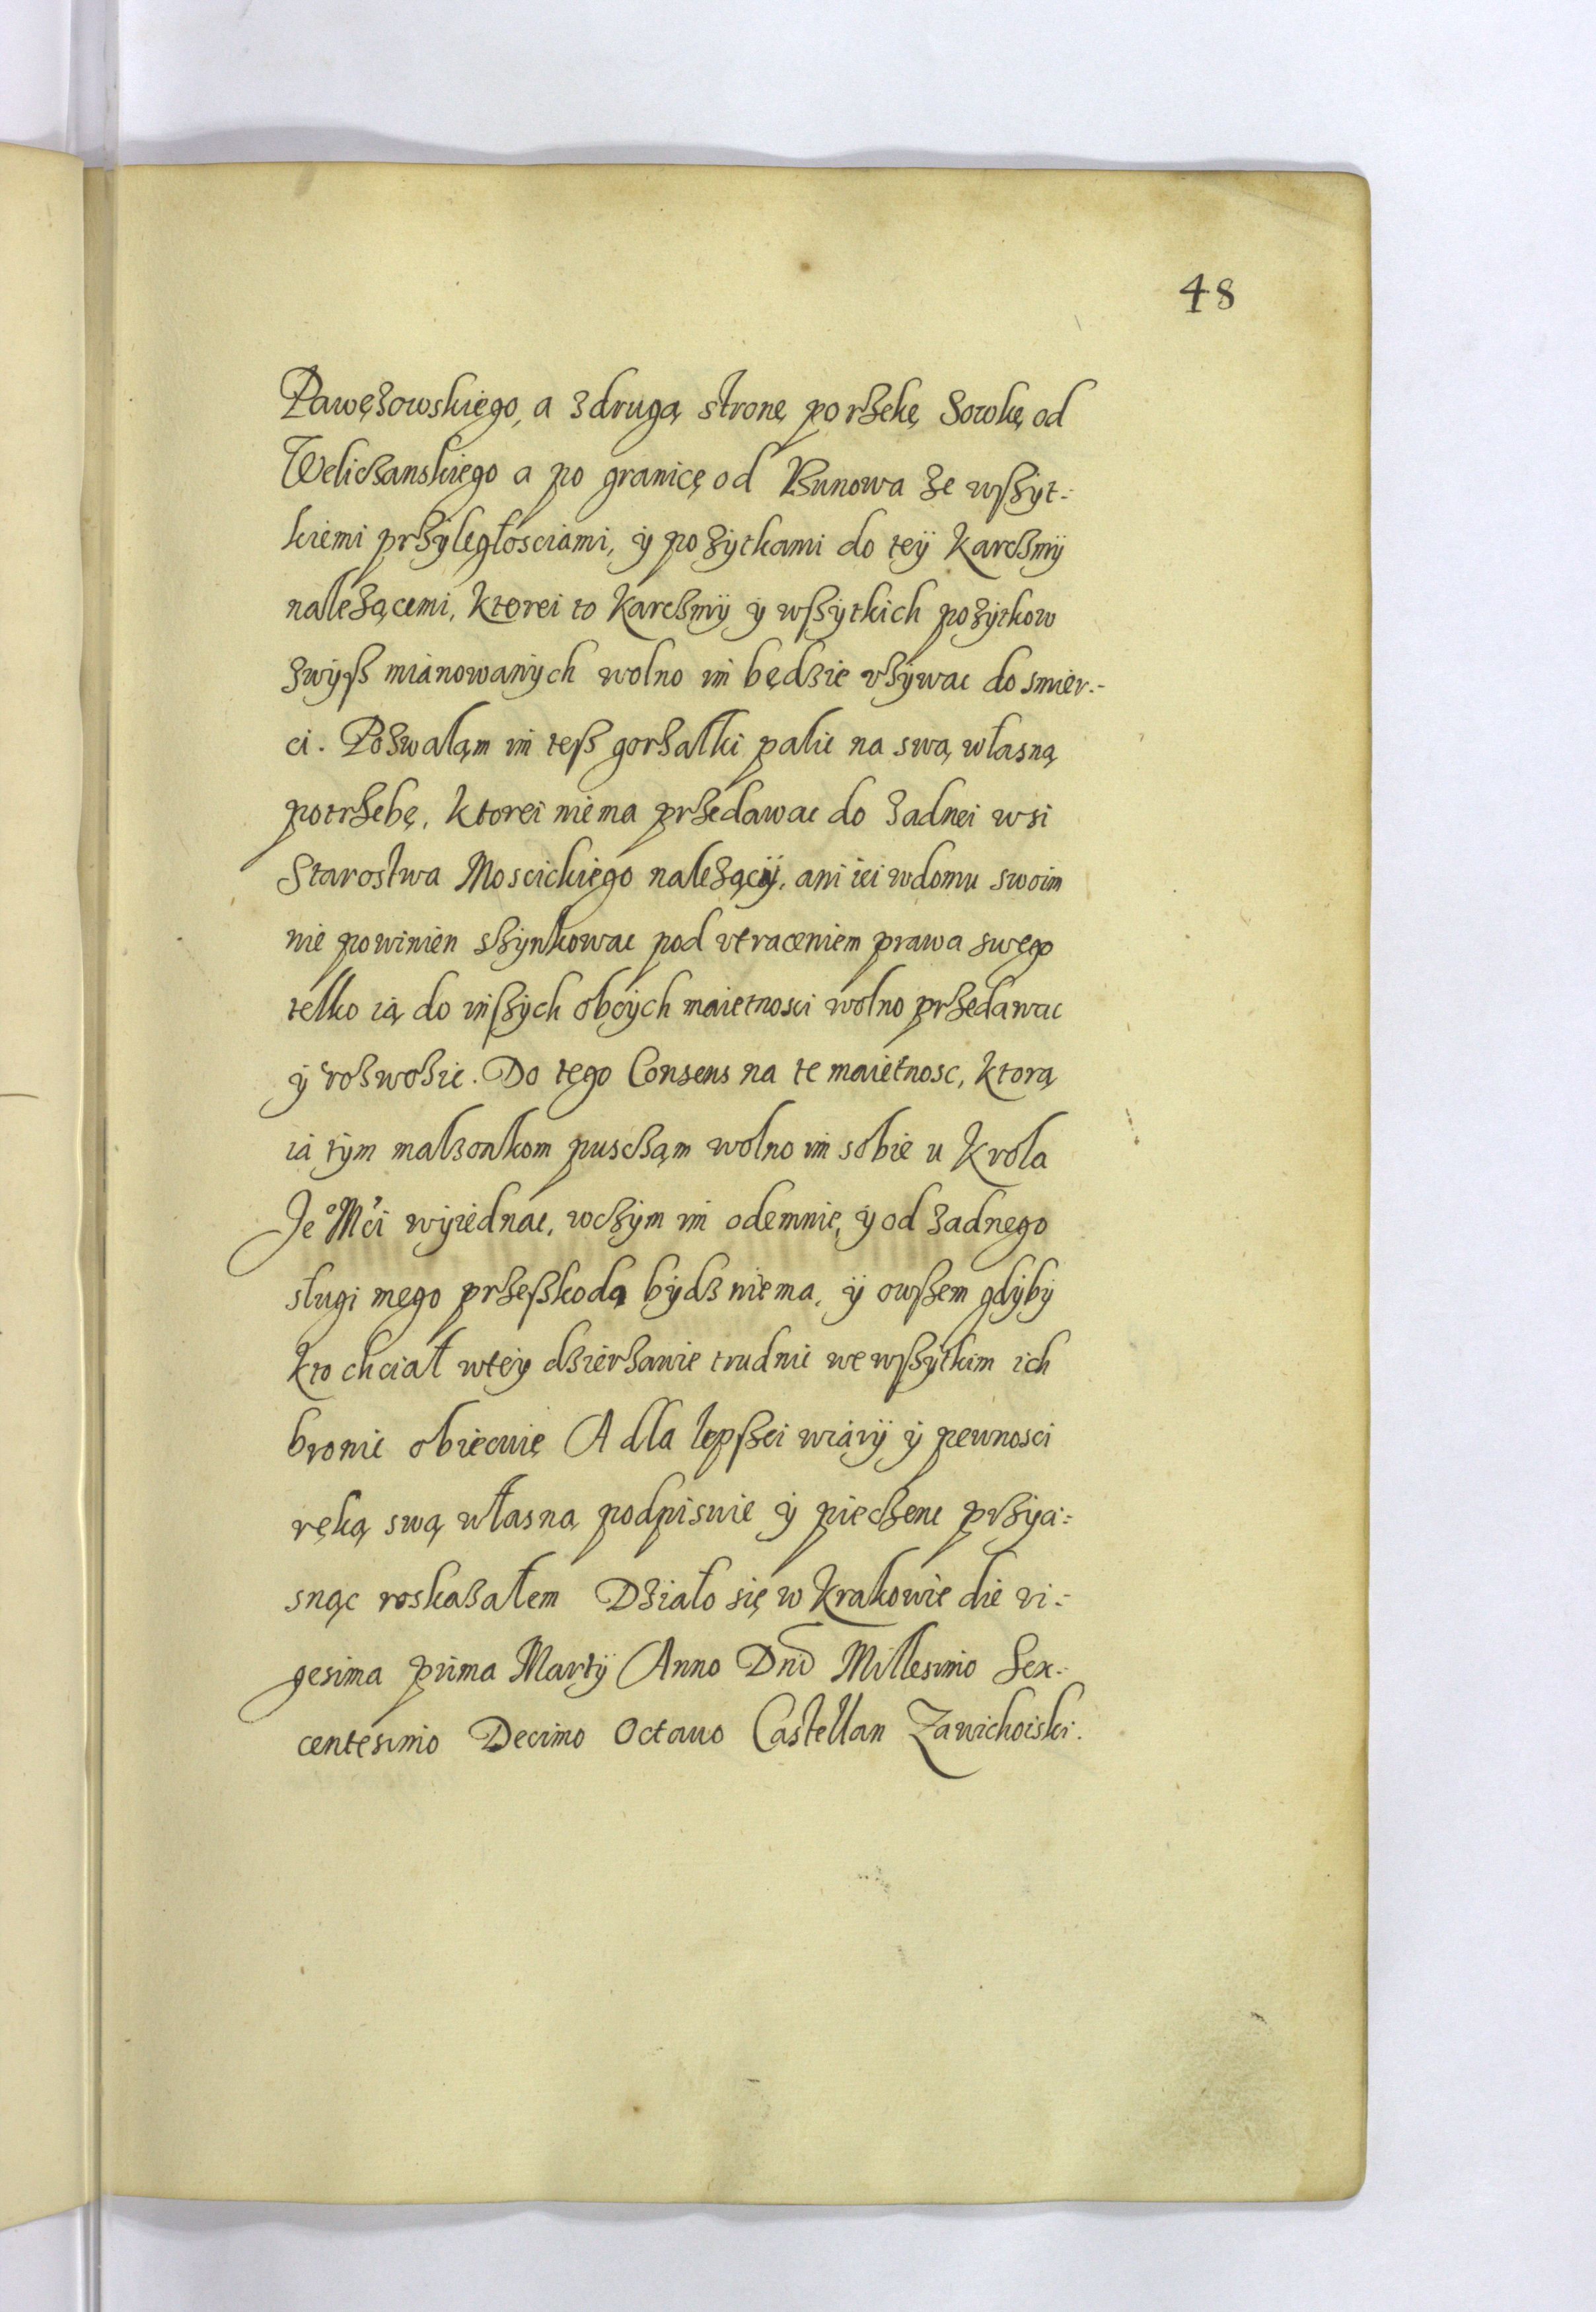 48
Pawęzowskiego, a z drugą stronę po rzekę Sowkę od
Weliczanskiego a po granicę od Bunowa ze wszyt-
kiemi przÿległosciami, ÿ pozytkami do teÿ Karczmÿ
nalezącemi, Ktorei to Karczmÿ ÿ wszÿtkich pozÿtkow
zwÿsz mianowanÿch wolno im będzie vzÿwac do smier-
ci. Pozwaląm im tesz gorzałki palic na swą własną
potrzebę, Ktorei nie ma przedawac do zadnei wsi
Starostwa Moscickiego nalezącÿ, ani iei w domu swoim
nie powinien szÿnkowac pod vtraceniem prawa swego
telko ią do inszÿch obcÿch maietnosci wolno przedawac
ÿ rozwozic. Do tego Consens na te maietnosc, Ktorą
ia tÿm malzonkom puscząm wolno im sobie u Krola
Je° Mći wÿiednac, w czÿm im odemnie, ÿ od zadnego
sługi mego przeszkoda bÿdz niema, ÿ owszem gdÿbÿ
Kto chciał w teÿ dzierzawie trudnic we wszÿtkim ich
bronic obiecuię A dla lepszei wiarÿ ÿ pewnosci
ręką swą własną podpisuie ÿ pieczenc przÿci-
snąc roskazałem Działo się w Krakowie die vi-
gesima prima Martÿ Anno Dni Millesimo Sex-
centesimo Decimo Octauo Castellan Zawichoiski.